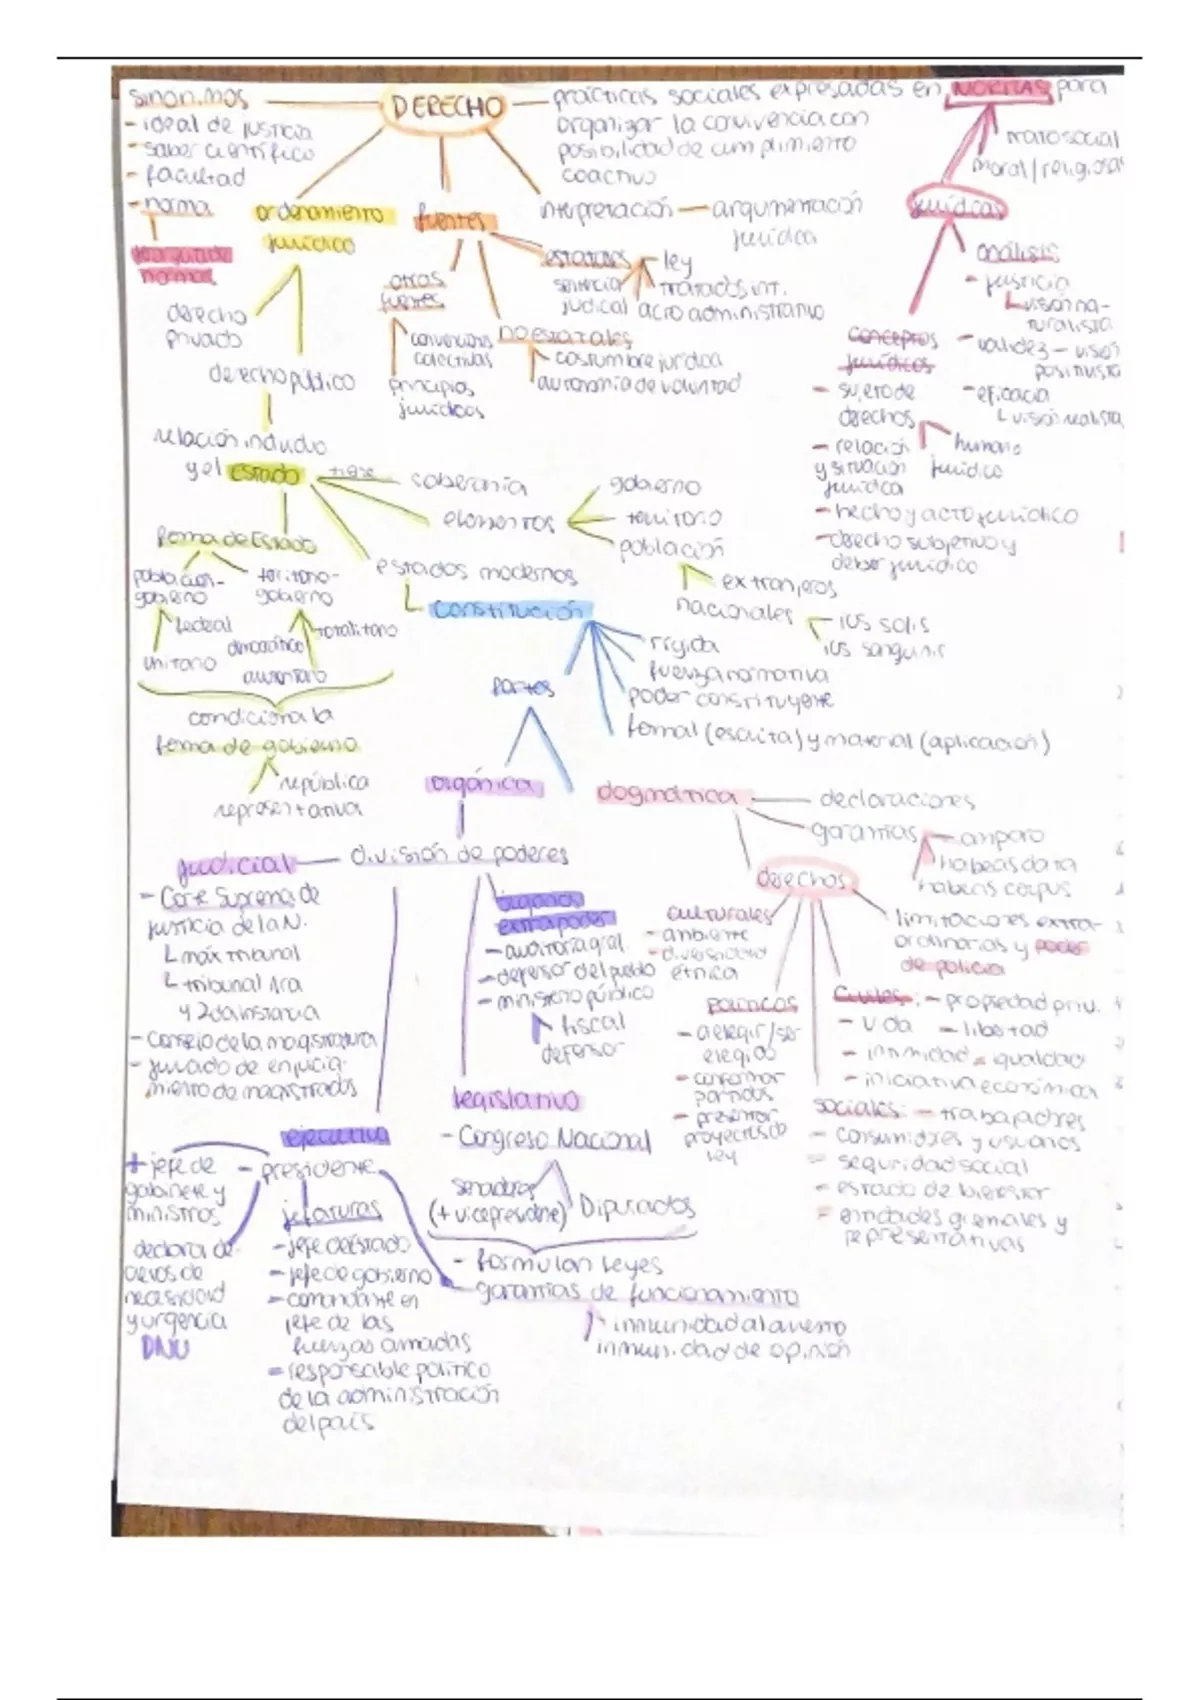 sinónimos
- ideal de justicia
- saber científico
- facultad
- norma
DERECHO
prácticas sociales expresadas en NORMAS para
organizar la convivencia con
posibilidad de cumplimiento
coactivo
trato social
moral/religiosa
jurídicas
ordenamiento
jurídico
fuentes
interpretación — argumentación
jurídica
normas
derecho
privado
derecho público
otras
fuentes
convenciones
colectivas
principios
jurídicos
estatales
ley
sentencia
judicial
tratados int.
acto administrativo
no estatales
costumbre jurídica
autonomía de voluntad
análisis
- justicia
visión na-
turalista
- validez - visión
positivista
- eficacia
visión realista
conceptos
jurídicos
- sujeto de
derechos
humano
jurídico
- relación
y situación
jurídica
- hecho y acto jurídico
- derecho subjetivo y
deber jurídico
relación individuo
y el ESTADO
tiene
soberanía
elementos
gobierno
territorio
población
extranjeros
nacionales
ius solis
ius sanguinis
estados modernos
constitución
forma de Estado
población-
gobierno
federal
unitario
territorio-
gobierno
totalitario
democrático
autoritario
condiciona la
forma de gobierno
república
representativa
rígida
fuerza normativa
poder constituyente
formal (escrita) y material (aplicación)
partes
orgánica
dogmática
declaraciones
garantías
amparo
habeas data
habeas corpus
derechos
limitaciones extra-
ordinarias y poder
de policía
culturales
- ambiente
- diversidad
étnica
políticos
- a elegir/ser
elegido
- conformar
partidos
- presentar
proyectos de
ley
civiles: - propiedad priv.
- vida - libertad
- intimidad - igualdad
- iniciativa económica
sociales: - trabajadores
- consumidores y usuarios
- seguridad social
- estado de bienestar
- entidades gremiales y
representativas
división de poderes
judicial
- Corte Suprema de
justicia de la N.
máx tribunal
tribunal 1ra
y 2da instancia
- Consejo de la magistratura
- jurado de enjuicia-
miento de magistrados
órganos
extrapoder
- auditoría gral
- defensor del pueblo
- ministerio público
fiscal
defensor
legislativo
- Congreso Nacional
senadores
(+ vicepresidente)
Diputados
- formulan leyes
- garantías de funcionamiento
inmunidad al arresto
inmunidad de opinión
ejecutivo
- presidente
+ jefe de
gabinete y
ministros
declara de-
cretos de
necesidad
y urgencia
DNU
jefaturas
- jefe de Estado
- jefe de gobierno
- comandante en
jefe de las
fuerzas armadas
- responsable político
de la administración
del país